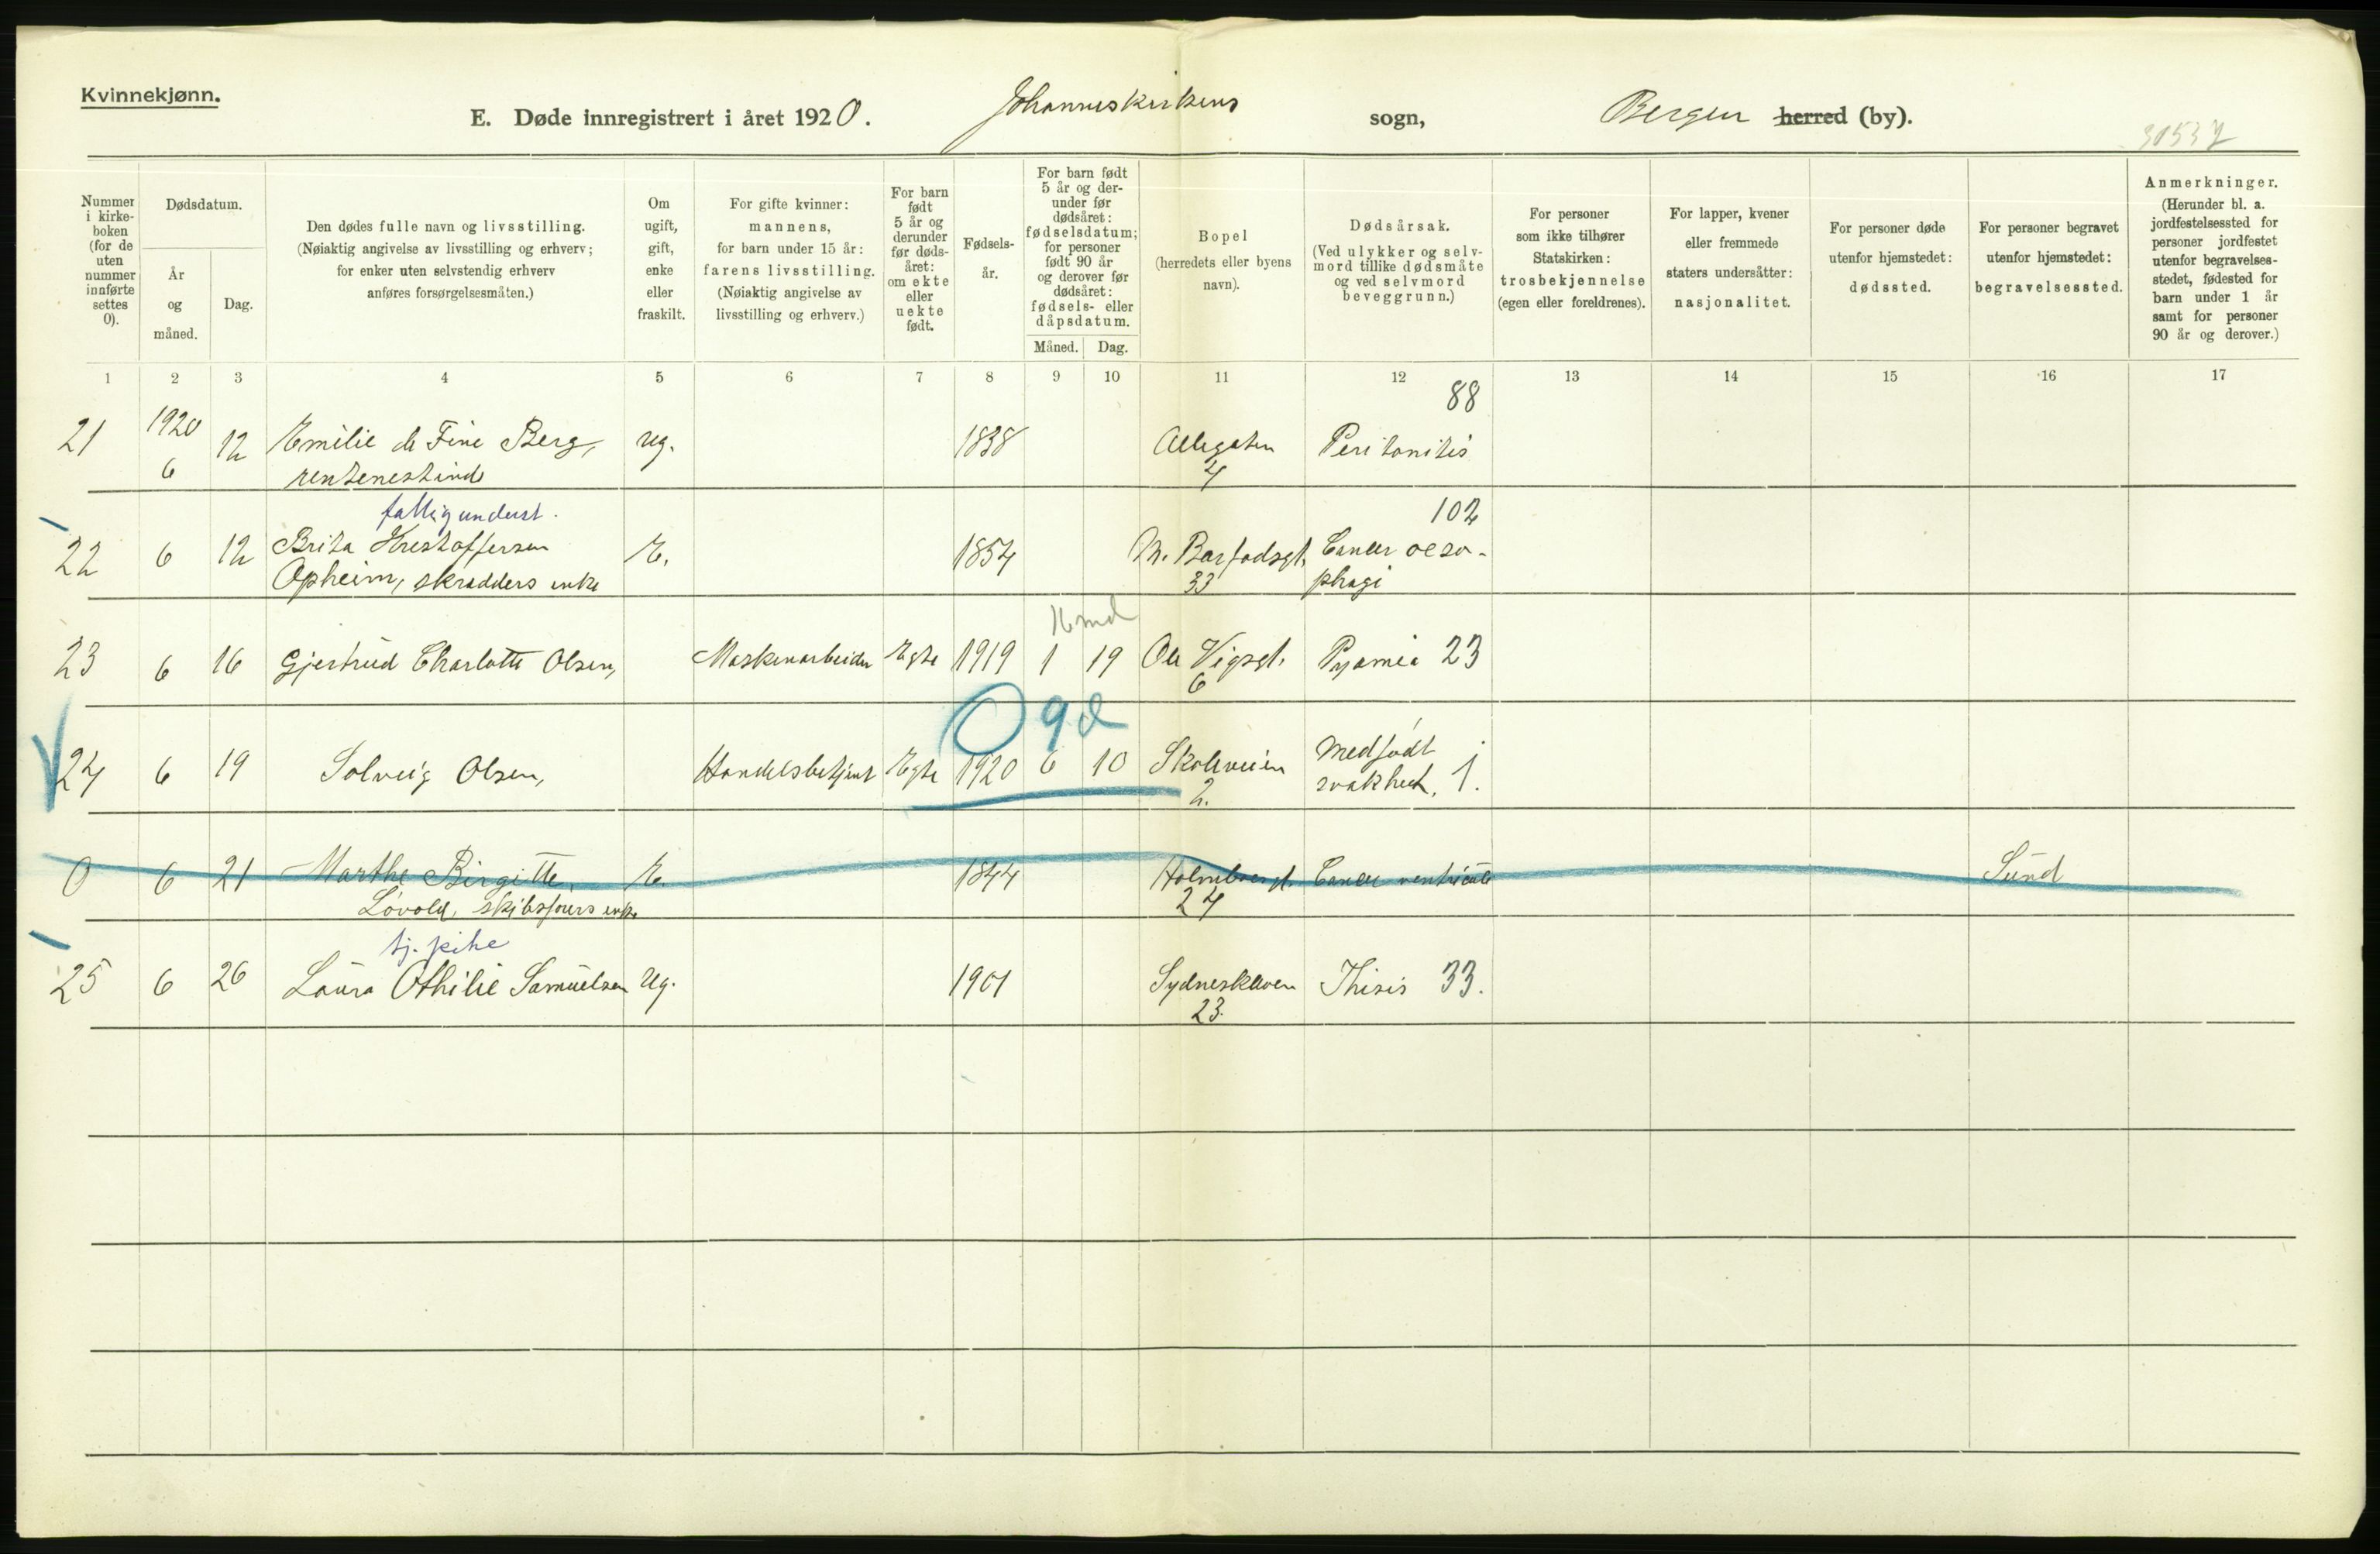 Kvinnekjønn.
E. Døde innregistrert i året 1920. Johanneskirkens sogn, Bergen herred (by).
Nummer i kirke-boken (for de uten nummer innførte settes 0).
Dødsdatum.
År og måned.
Dag.
Den dødes fulle navn og livsstilling.
(Nøiaktig angivelse av livsstilling og erhverv;
for enker uten selvstendig erhverv
anføres forsørgelsesmåten.)
Om ugift, gift, enke eller fraskilt.
For gifte kvinner:
mannens,
for barn under 15 år:
farens livsstilling.
(Nøiaktig angivelse av
livsstilling og erhverv.)
For barn født 5 år og derunder før døds-året: om ekte eller uekte født.
Fødsels-år.
For barn født
5 år og der-
under før
dødsåret:
fødselsdatum;
for personer
født 90 år
og derover før
dødsåret:
fødsels- eller
dåpsdatum.
Måned. Dag.
Bopel
(herredets eller byens
navn).
Dødsårsak.
(Ved ulykker og selv-
mord tillike dødsmåte
og ved selvmord
beveggrunn.)
For personer
som ikke tilhører
Statskirken:
trosbekjennelse
(egen eller foreldrenes).
For lapper, kvener
eller fremmede
staters undersåtter:
nasjonalitet.
For personer døde
utenfor hjemstedet:
dødssted.
For personer begravet
utenfor hjemstedet:
begravelsessted.
Anmerkninger.
(Herunder bl. a.
jordfestelsessted for
personer jordfestet
utenfor begravelses-
stedet, fødested for
barn under 1 år
samt for personer
90 år og derover.)
1 2 3 4 5 6 7 8 9 10 11 12 13 14 15 16 17
88
21 1920 6 12 Emilie de Fine Berg, ug. 1838 Allegaten 4 Peritonitis
rentenestinde
fattigunderst. 102
22 6 12 Brita Kristoffersen E. 1854 M. Barfodsgt. 33 Cancer oeso-
Opheim, skrædders enke phagi
23 6 16 Gjertrud Charlotte Olsen, Maskinarbeider Egte 1919 1 19 Ole Vigsgt. 6 Pyæmia 23
0 9 d
24 6 19 Solveig Olsen, Handelsbetjent Egte 1920 6 10 Skoleveien 2. Medfødt
svakhet. 1.
0 6 21 Marthe Birgitte E. 1844 Holmbergt. 24 Cancer ventriculi Sund
Løvold, skibsførers enke
tj. pike
25 6 26 Laura Othilie Samuelsen Ug. 1901 Sydneskleven 23. Thisis 33.